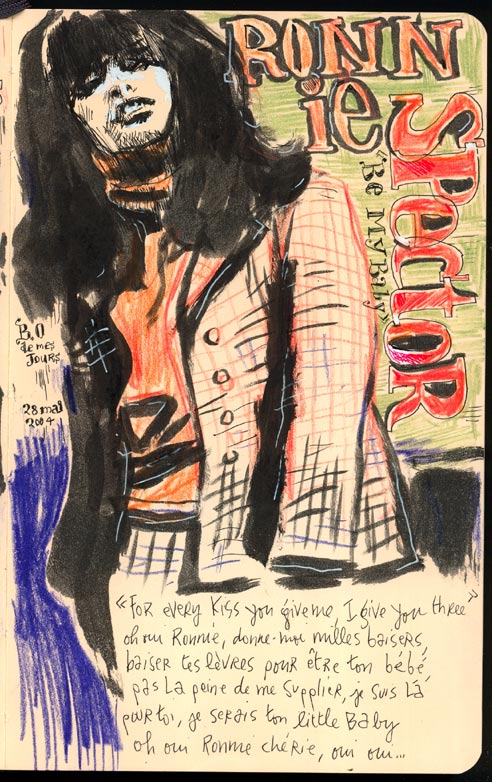 RONN
ie
SPectoR
"Be My Baby"
B.O
de mes
Jours
28 mai
2004
« For every Kiss you give me, I give you three »
oh oui Ronnie, donne-moi milles baisers,
baiser tes lèvres pour être ton bébé,
pas La peine de me supplier, je suis Là
pour toi, je serais ton little Baby
oh oui Ronnie chérie, oui oui...